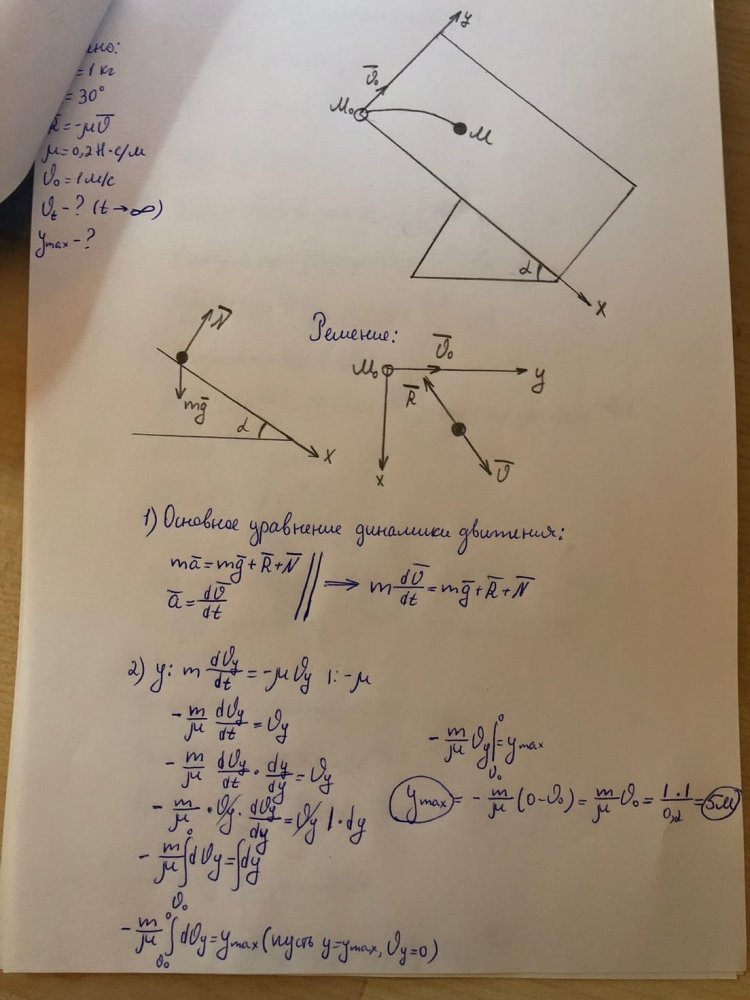 но:
= 1 кг
= 30°
R̅ = -μV̅
μ = 0,2 Н·с/м
V₀ = 1 м/с
Vₜ - ? (t → ∞)
yₘₐₓ - ?
y
V̅₀
M₀
M
α
x
N̅
mg̅
α
x
Решение:
M₀
V̅₀
y
R̅
x
V̅
1) Основное уравнение динамики движения:
ma̅ = mg̅ + R̅ + N̅
a̅ = dV̅/dt
⟹ m dV̅/dt = mg̅ + R̅ + N̅
2) y: m dVy/dt = -μVy |: -μ
- m/μ dVy/dt = Vy
- m/μ dVy/dt · dy/dy = Vy
- m/μ · Vy · dVy/dy = Vy | · dy
- m/μ ∫_{V₀}^{0} dVy = ∫ dy
- m/μ ∫_{V₀}^{0} dVy = yₘₐₓ (пусть y = yₘₐₓ, Vy = 0)
- m/μ Vy |_{V₀}^{0} = yₘₐₓ
yₘₐₓ = - m/μ (0 - V₀) = m/μ V₀ = 1·1/0,2 = 5м